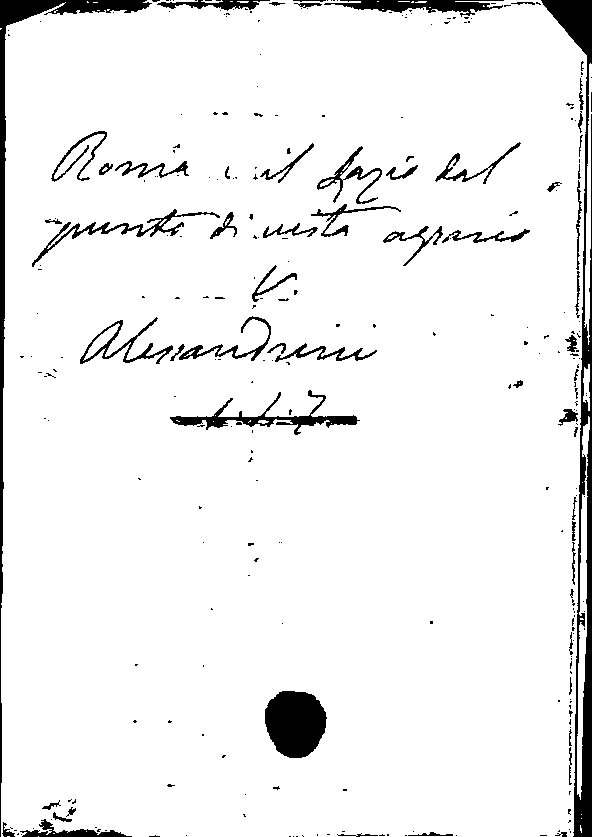 Roma e il Lazio dal
punto di vista agrario
V.
Alessandrini
1.1.7